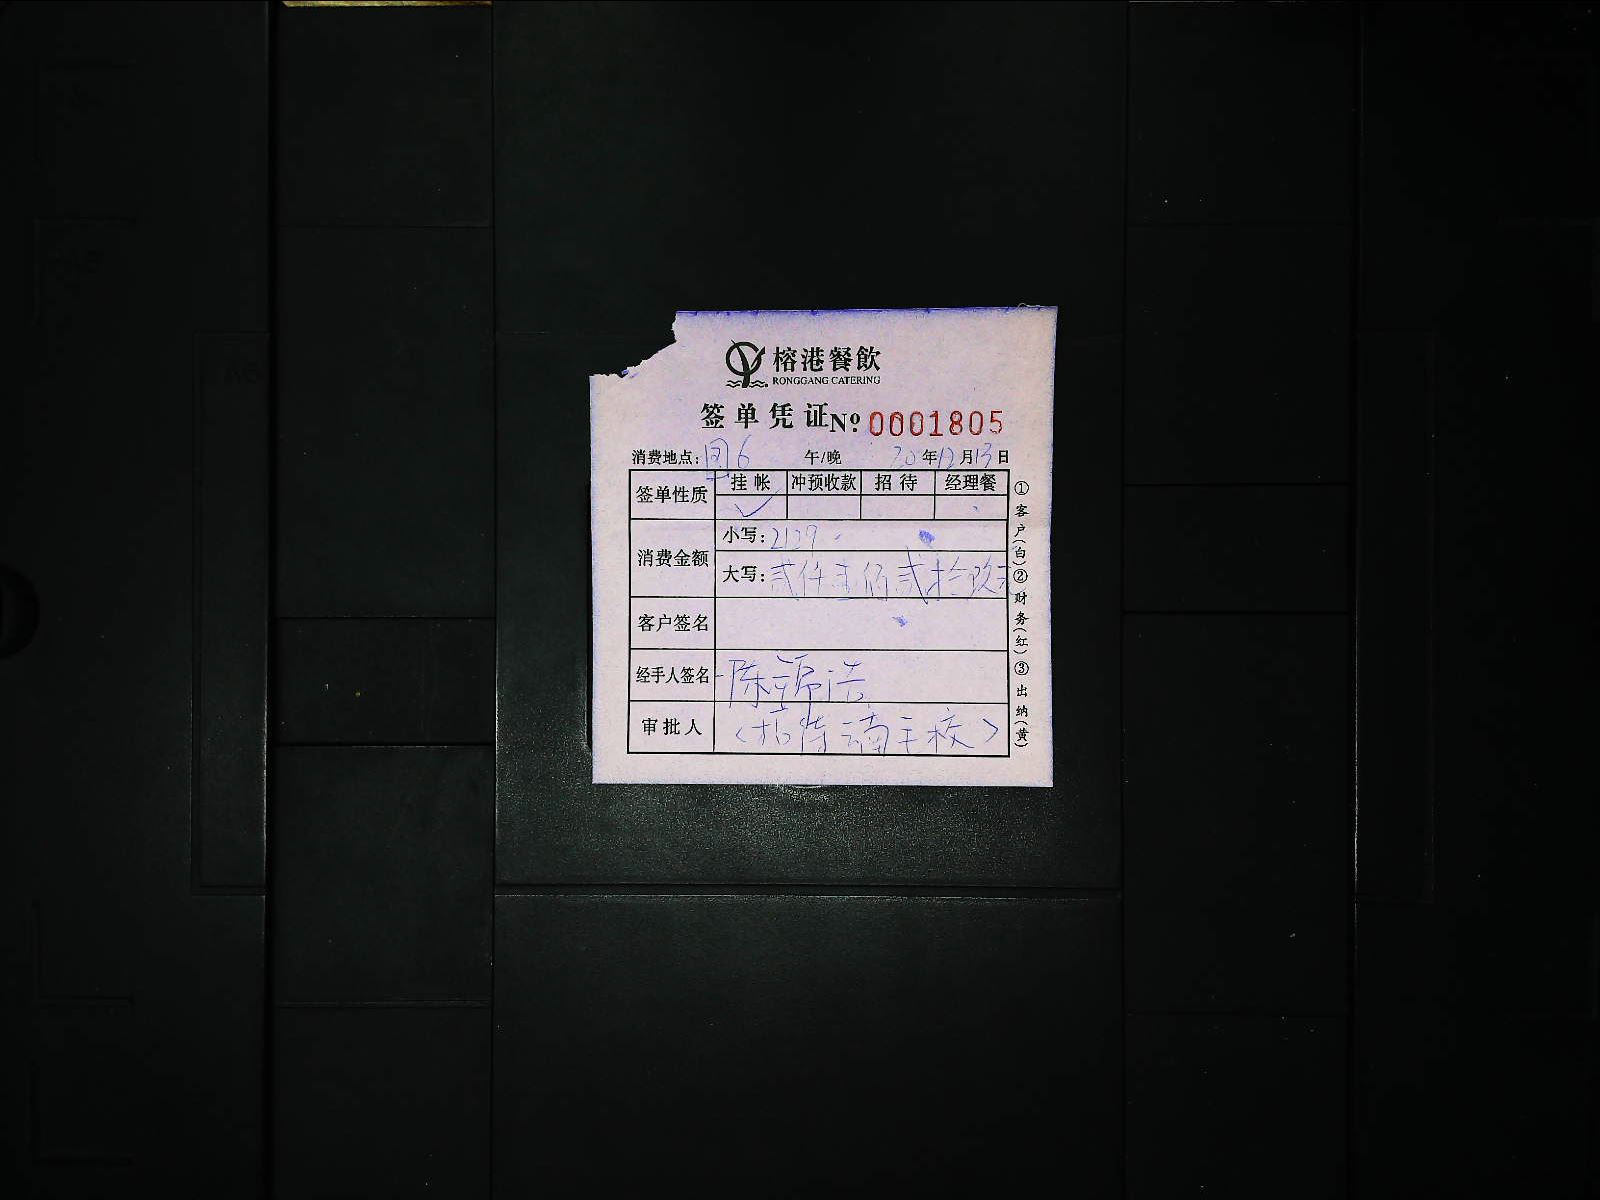 榕港餐飲
RONGGANG CATERING
签单凭证 No 0001805
消费地点: 图6 午/晚 20年12月13日
签单性质 挂帐 冲预收款 招待 经理餐
✓
消费金额 小写: 2129
大写: 贰仟壹佰贰拾玖元
客户签名
经手人签名 陈 浩
审批人 (招待 南 校)
①客户(白)②财务(红)③出纳(黄)